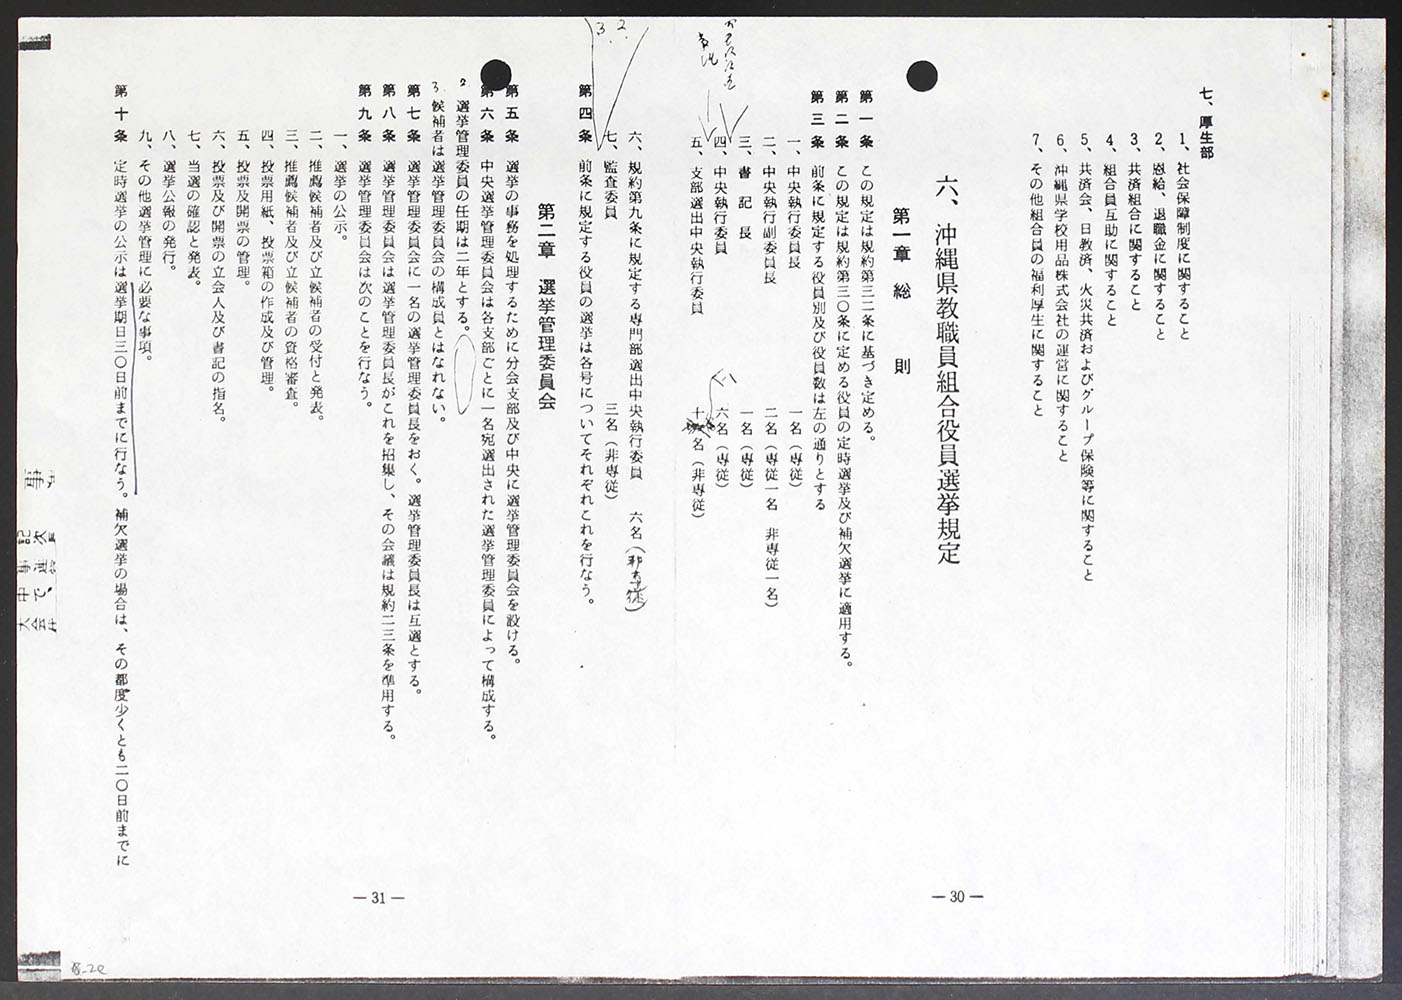 七、厚生部
1、社会保障制度に関すること
2、恩給、退職金に関すること
3、共済組合に関すること
4、組合員互助に関すること
5、共済会、日教済、火災共済およびグループ保険等に関すること
6、沖縄県学校用品株式会社の運営に関すること
7、その他組合員の福利厚生に関すること
六、沖縄県教職員組合役員選挙規定
第一章 総 則
第一条 この規定は規約第三二条に基づき定める。
第二条 この規定は規約第三〇条に定める役員の定時選挙及び補欠選挙に適用する。
第三条 前条に規定する役員別及び役員数は左の通りとする
一、中央執行委員長 一名（専従）
二、中央執行副委員長 二名（専従一名 非専従一名）
三、書記長 一名（専従）
四、中央執行委員 六名（専従）
五、支部選出中央執行委員 十名（非専従）
— 30 —
六、規約第九条に規定する専門部選出中央執行委員 六名（非専従）
七、監査委員 三名（非専従）
3. 2.
第四条 前条に規定する役員の選挙は各号についてそれぞれこれを行なう。
第二章 選挙管理委員会
第五条 選挙の事務を処理するために分会支部及び中央に選挙管理委員会を設ける。
第六条 中央選挙管理委員会は各支部ごとに一名宛選出された選挙管理委員によって構成する。
2 選挙管理委員の任期は二年とする。
3. 候補者は選挙管理委員会の構成員とはなれない。
第七条 選挙管理委員会に一名の選挙管理委員長をおく。選挙管理委員長は互選とする。
第八条 選挙管理委員会は選挙管理委員長がこれを招集し、その会議は規約二三条を準用する。
第九条 選挙管理委員会は次のことを行なう。
一、選挙の公示。
二、推薦候補者及び立候補者の受付と発表。
三、推薦候補者及び立候補者の資格審査。
四、投票用紙、投票箱の作成及び管理。
五、投票及開票の管理。
六、投票及び開票の立会人及び書記の指名。
七、当選の確認と発表。
八、選挙公報の発行。
九、その他選挙管理に必要な事項。
第十条 定時選挙の公示は選挙期日三〇日前までに行なう。補欠選挙の場合は、その都度少くとも二〇日前までに
— 31 —